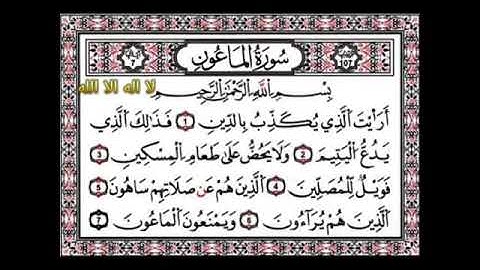 سُورَةُ الْمَاعُونِ
107
7
لا اله الا الله
بِسْمِ اللَّهِ الرَّحْمَٰنِ الرَّحِيمِ
أَرَأَيْتَ الَّذِي يُكَذِّبُ بِالدِّينِ 1 فَذَٰلِكَ الَّذِي
يَدُعُّ الْيَتِيمَ 2 وَلَا يَحُضُّ عَلَىٰ طَعَامِ الْمِسْكِينِ 3
فَوَيْلٌ لِّلْمُصَلِّينَ 4 الَّذِينَ هُمْ عَن صَلَاتِهِمْ سَاهُونَ 5
الَّذِينَ هُمْ يُرَاءُونَ 6 وَيَمْنَعُونَ الْمَاعُونَ 7